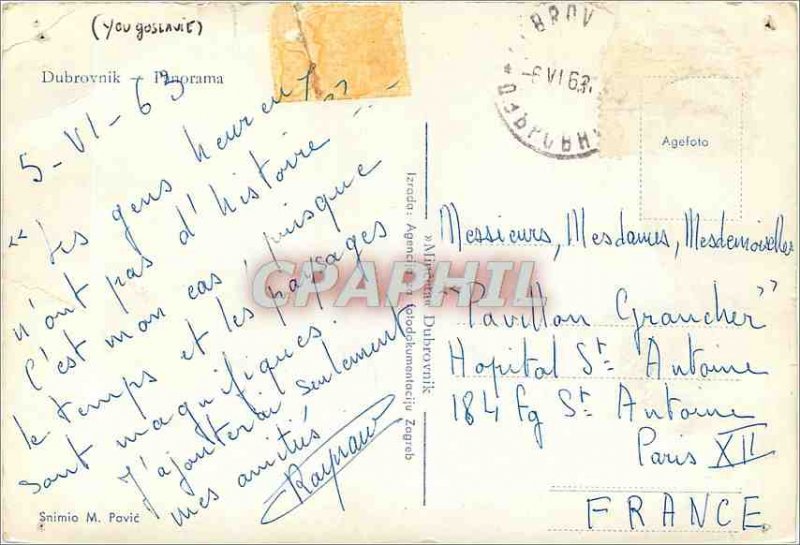 (YOUGOSLAVIE)
Dubrovnik — Panorama
5-VI-63
"Les gens heureux
n'ont pas d'histoire"
C'est mon cas, puisque
le temps et les paysages
sont magnifiques.
J'ajouterai seulement
mes amitiés
Snimio M. Pavić
»Minčeta« Dubrovnik
Izrada: Agencija za fotodokumentaciju Zagreb
-6 VI 63
Agefoto
Messieurs, Mesdames, Mesdemoiselles
"Pavillon Grancher"
Hopital St Antoine
184 Fg St Antoine
Paris XII
FRANCE
CPAPHIL